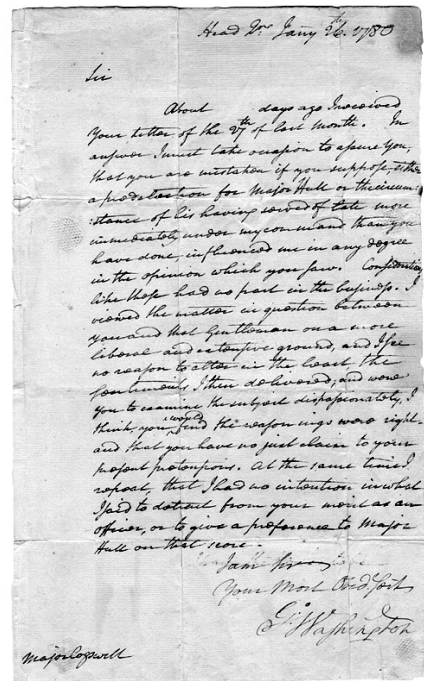 Head Qrs Jany 26th 1780
Sir
About days ago I received
Your letter of the 7th of last month. In
answer I must take occasion to assure you,
that you are mistaken if you suppose, either
a predelection for Major Hull or the circum-
:stance of his having served of late more
immediately under my command than you
have done, influenced me in any degree
in the opinion which you saw. Considerations
like these had no part in the business. I
viewed the matter in question between
you and that Gentleman on a more
liberal and extensive ground, and I see
no reason to alter in the least, the
sentiments I then delivered; and were
you to examine the subject dispassionately, I
think you would find the reasonings were right-
and that you have no just claim to your
present pretensions. At the same time I
repeat, that I had no intention in what
I said to detract from your merit as an
officer, or to give a preference to Major
Hull on that score.
I am Sir
Your Most Obedt Servt
Go Washington
Major Cogswell